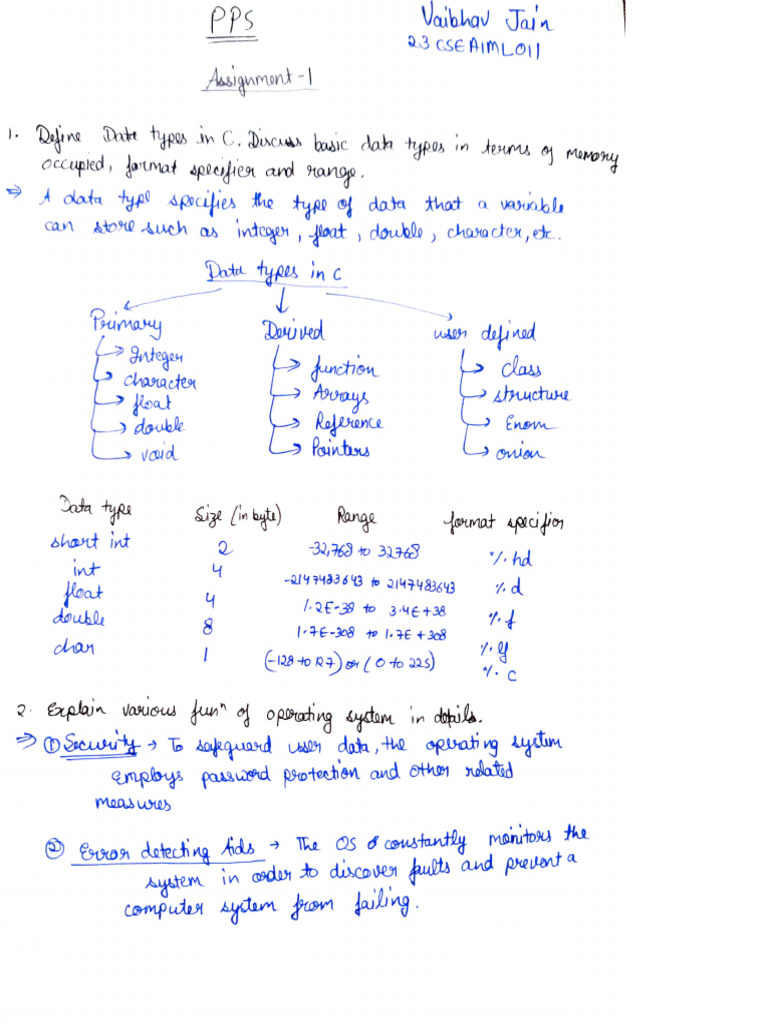 PPS
Vaibhav Jain
23CSEAIML011
Assignment-1
1. Define Data types in C. Discuss basic data types in terms of memory
occupied, format specifier and range.
⇒ A data type specifies the type of data that a variable
can store such as integer, float, double, character, etc.
Data types in c
Primary
Integer
character
float
double
void
Derived
function
Arrays
Reference
Pointers
user defined
class
structure
Enom
onion
Data type Size (in byte) Range format specifior
short int 2 -32,768 to 32768 %hd
int 4 -2147483643 to 2147483643 %d
float 4 1.2E-38 to 3.4E+38 %f
double 8 1.7E-308 to 1.7E+308 %lf
char 1 (-128 to 127) or (0 to 225) %c
2. Explain various funⁿ of operating system in details.
⇒ ① Security → To safeguard user data, the operating system
employs password protection and other related
measures
② Error detecting Aids → The OS constantly monitors the
system in order to discover faults and prevent a
computer system from failing.